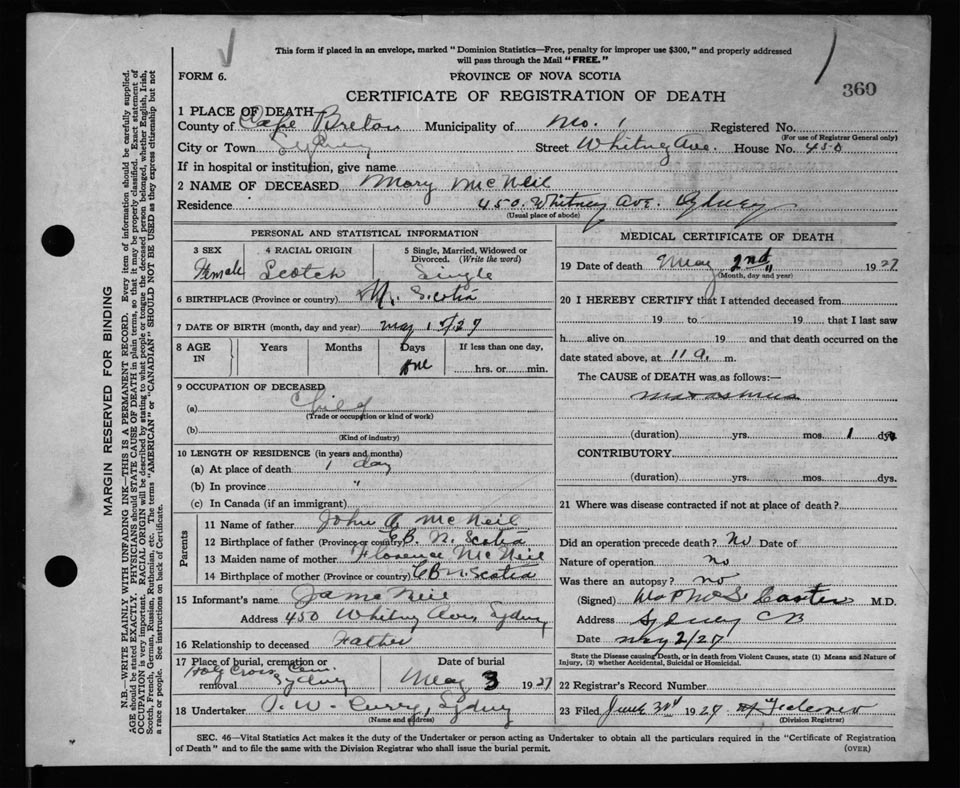 This form if placed in an envelope, marked "Dominion Statistics—Free, penalty for improper use $300," and properly addressed
will pass through the Mail "FREE."
FORM 6.
PROVINCE OF NOVA SCOTIA
360
CERTIFICATE OF REGISTRATION OF DEATH
1 PLACE OF DEATH—
County of Cape Breton Municipality of No. 1 Registered No.
(For use of Registrar General only)
City or Town Sydney Street Whitney Ave. House No. 450
If in hospital or institution, give name
2 NAME OF DECEASED Mary McNeil
Residence 450 Whitney Ave. Sydney
(Usual place of abode)
PERSONAL AND STATISTICAL INFORMATION
3 SEX 4 RACIAL ORIGIN 5 Single, Married, Widowed or
Divorced. (Write the word)
Female Scotch Single
6 BIRTHPLACE (Province or country) N. Scotia
7 DATE OF BIRTH (month, day and year) May 1st/27
8 AGE IN Years Months Days If less than one day,
one hrs. or min.
9 OCCUPATION OF DECEASED
(a) Child
(Trade or occupation or kind of work)
(b)
(Kind of industry)
10 LENGTH OF RESIDENCE (in years and months)
(a) At place of death 1 day
(b) In province "
(c) In Canada (if an immigrant)
Parents
11 Name of father John A McNeil
12 Birthplace of father (Province or country) C.B. N. Scotia
13 Maiden name of mother Florence McNeil
14 Birthplace of mother (Province or country) C B N. Scotia
15 Informant's name J A McNeil
Address 450 Whitney Ave, Sydney
16 Relationship to deceased Father
17 Place of burial, cremation or Date of burial
removal Holy Cross Cem. Sydney May 3 1927
18 Undertaker Curry, Sydney
(Name and address)
MEDICAL CERTIFICATE OF DEATH
19 Date of death May 2nd 1927
(Month, day and year)
20 I HEREBY CERTIFY that I attended deceased from
19 to 19 that I last saw
h alive on 19 and that death occurred on the
date stated above, at 11 a. m.
The CAUSE of DEATH was as follows:—
Marasmus
(duration) yrs. mos. 1 dys.
CONTRIBUTORY
(duration) yrs. mos. dys.
21 Where was disease contracted if not at place of death?
Did an operation precede death? No Date of
Nature of operation no
Was there an autopsy? no
(Signed) M.D.
Address Sydney CB
Date May 2/27
State the Disease causing Death, or in death from Violent Causes, state (1) Means and Nature of
Injury, (2) whether Accidental, Suicidal or Homicidal.
22 Registrar's Record Number
23 Filed June 3rd 1927
(Division Registrar)
SEC. 46—Vital Statistics Act makes it the duty of the Undertaker or person acting as Undertaker to obtain all the particulars required in the "Certificate of Registration
of Death" and to file the same with the Division Registrar who shall issue the burial permit.
(OVER)
MARGIN RESERVED FOR BINDING
N.B.—WRITE PLAINLY WITH UNFADING INK—THIS IS A PERMANENT RECORD. Every item of information should be carefully supplied.
AGE should be stated EXACTLY. PHYSICIANS should STATE CAUSE OF DEATH in plain terms, so that it may be properly classified. Exact statement of
OCCUPATION is very important. RACIAL ORIGIN will be described by stating to what people or tongue the deceased person belonged, whether English, Irish,
Scotch, French, German, Russian, Ruthenian, etc. The terms "AMERICAN" or "CANADIAN" SHOULD NOT BE USED as they express citizenship but not
a race or people. See instructions on back of Certificate.